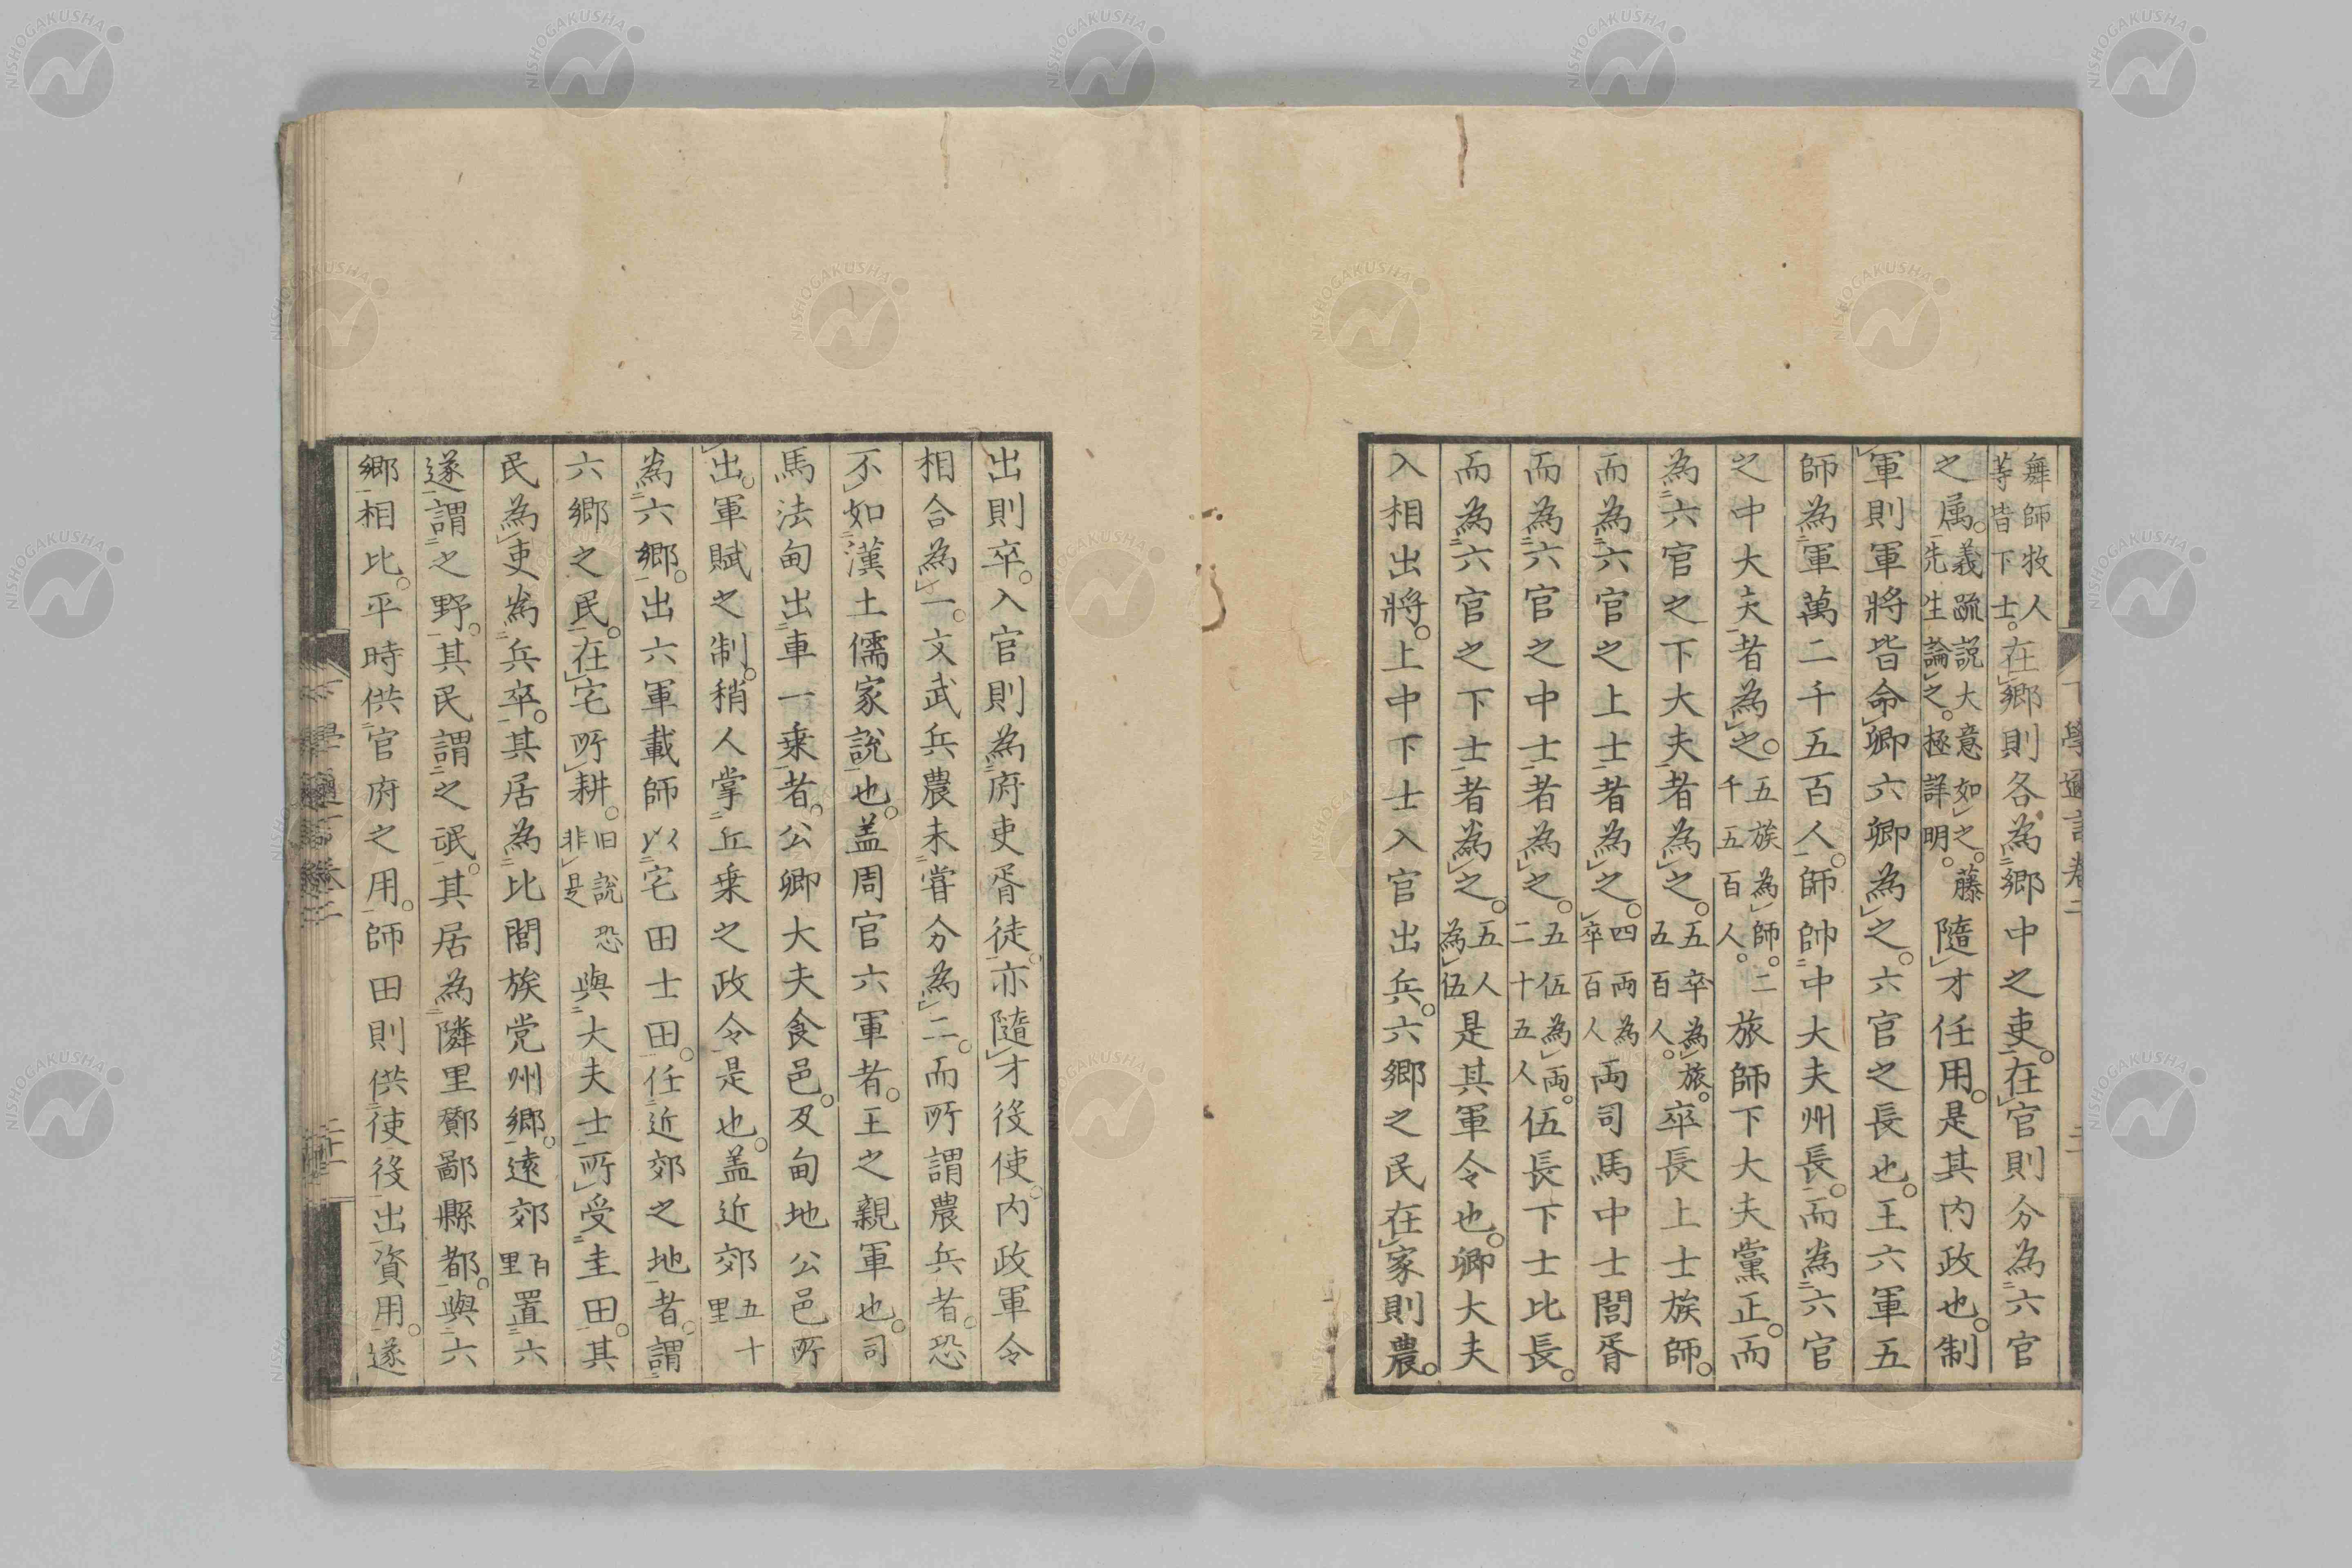 舞師牧人等皆下士。在鄉則各為鄉中之吏。在官則分為六官
之属。義疏説大意如之。藤先生論之。極詳明。隨才任用。是其内政也。制
軍則軍將皆命卿六卿為之。六官之長也。王六軍五
師為軍萬二千五百人。師帥中大夫州長。而為六官
之中大夫者為之。五族為師。二千五百人。旅師下大夫黨正。而
為六官之下大夫者為之。五卒為旅。五百人。卒長上士族師。
而為六官之上士者為之。四両為卒百人両司馬中士閭胥
而為六官之中士者為之。五伍為両。二十五人伍長下士比長。
而為六官之下士者為之。五人為伍是其軍令也。卿大夫
入相出將。上中下士入官出兵。六鄉之民在家則農。
出則卒。入官則為府吏胥徒。亦隨才役使。内政軍令
相合為一。文武兵農未嘗分為二。而所謂農兵者。恐
不如漢土儒家説也。盖周官六軍者。王之親軍也。司
馬法甸出車一乗者。公卿大夫食邑。及甸地公邑所
出。軍賦之制。稍人掌丘乗之政令是也。盖近郊五十里
為六鄉。出六軍載師以宅田士田。任近郊之地者。謂
六鄉之民。在宅所耕。旧説恐非是與大夫士所受圭田。其
民為吏為兵卒。其居為比閭族党州鄉。遠郊百里置六
遂謂之野。其民謂之氓。其居為隣里酇鄙縣都。與六
鄉相比。平時供官府之用。師田則供使役出資用。遂
NISHOGAKUSHA